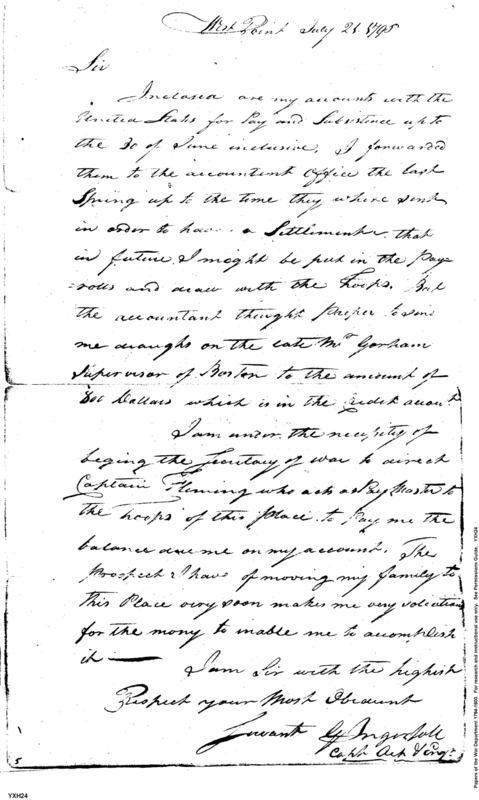 West Point July 21 1795
Sir
Inclosed are my accounts with the
United States for Pay and Subsistence up to
the 30 of June inclusive. I forwarded
them to the accountent office the last
Spring up to the time they where sent
in order to have a Settlement that
in future I might be put in the Pay
=rolls and draw with the troops. But
the accountant thought proper to send
me draughts on the late Mr Gorham
Supervisor of Boston to the amount of
Dollars which is in the Credit accout
I am under the necessity of
beging the Secretary of war to direct
Captain Fleming who acts as Pay Master to
the troops of this place to Pay me the
balance due me on my account. The
prospect I have of moving my family to
this Place very soon makes me very
for the mony to inable me to accomplish
it — I am Sir with the highist
Respect your Most Obediunt
Servant G Ingersoll
Capt Art & Engr
5
YXH24
Papers of the War Department 1784-1800. For research and instructional use only. See Permissions Guide. YXH24